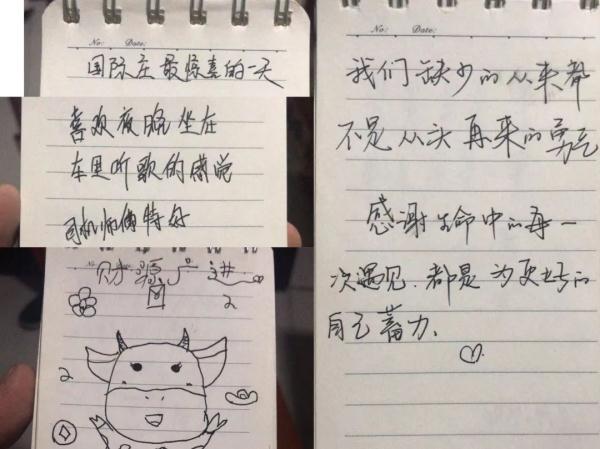 No: Date:
国际庄最惊喜的一天
喜欢夜晚坐在
车里听歌的感觉
司机师傅特好
财源广进
2
2
No: Date:
我们缺少的从来都
不是从头再来的勇气
感谢生命中的每一
次遇见.都是为更好的
自己蓄力、